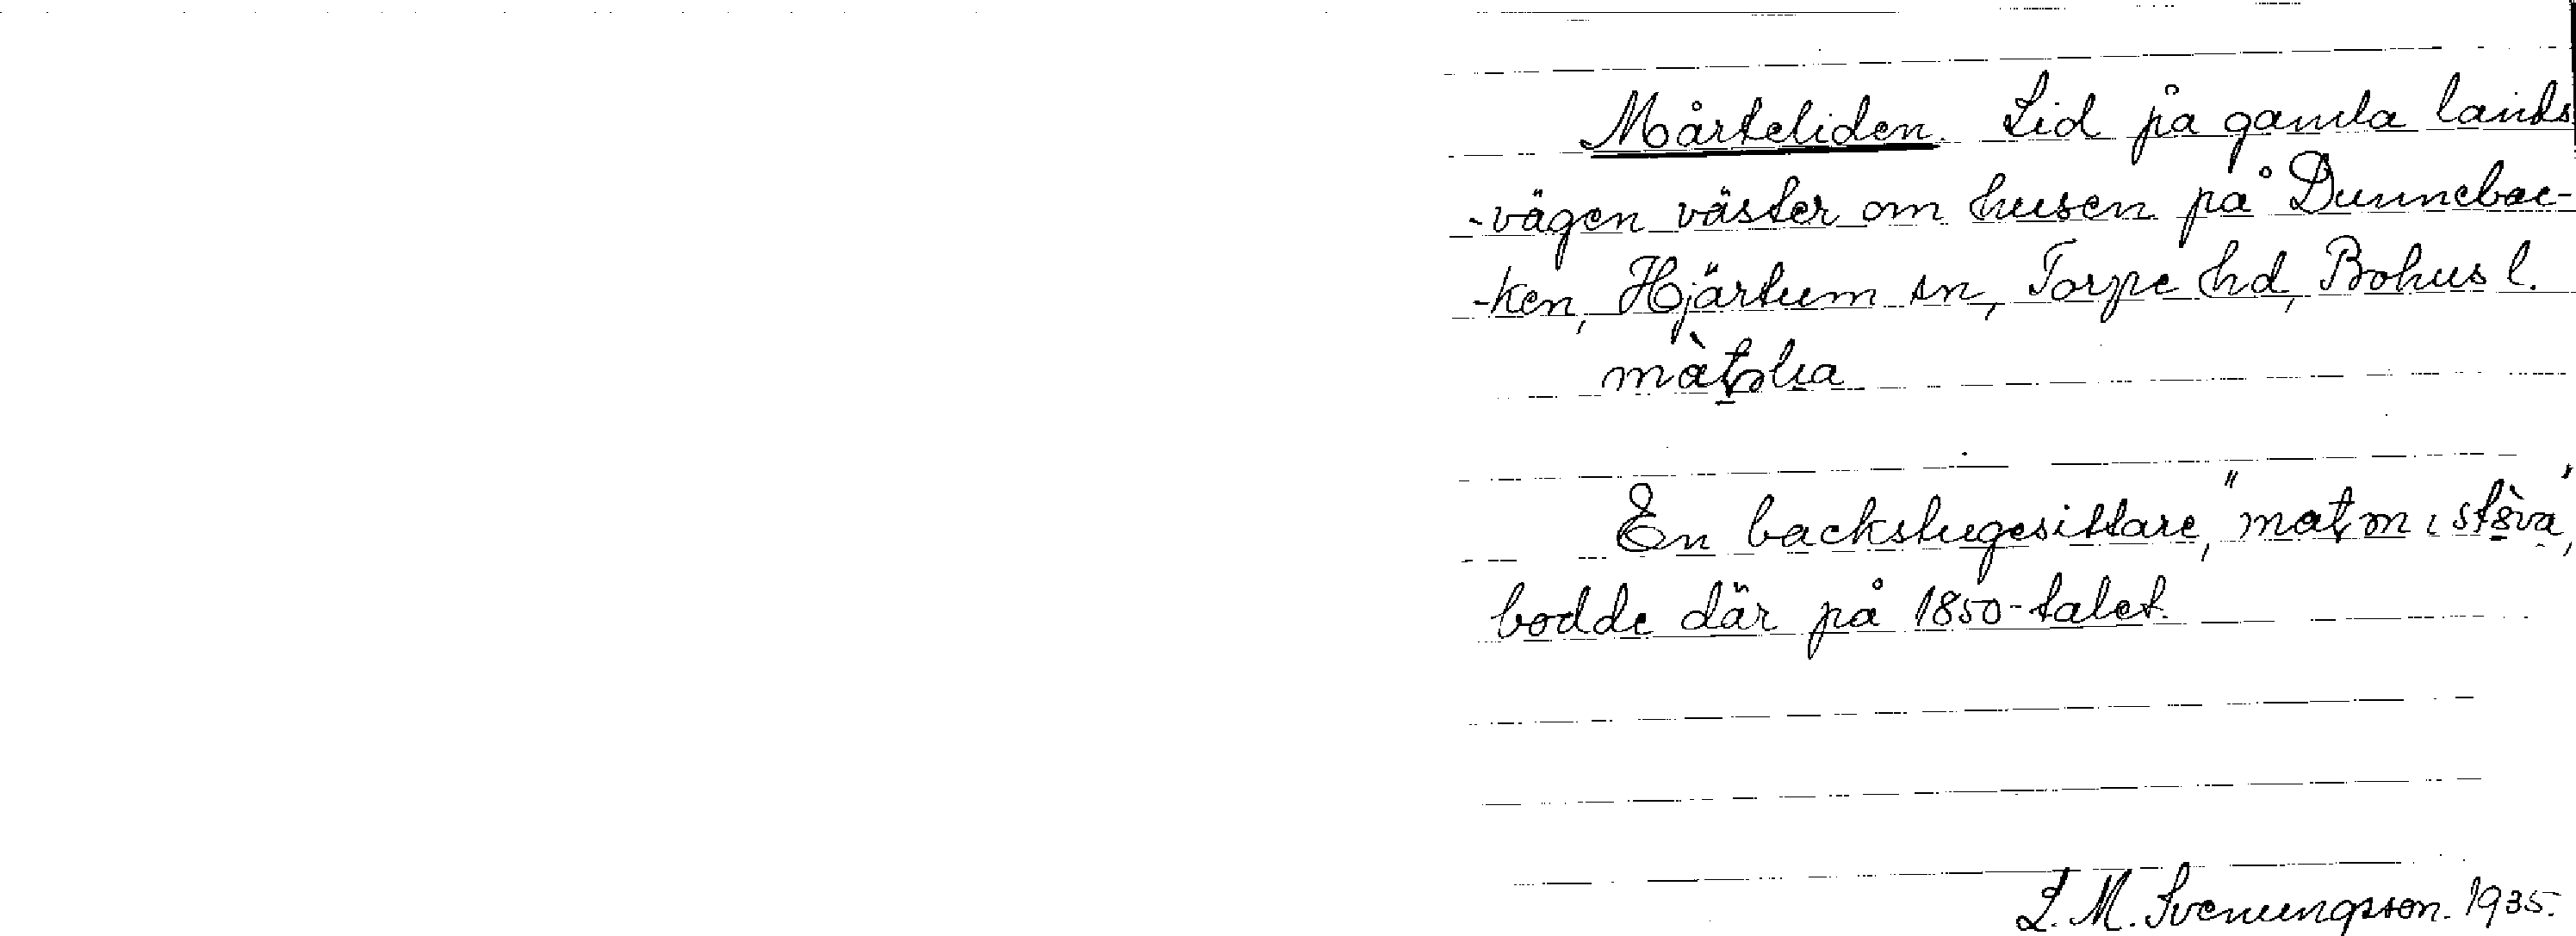 Mårteliden. Lid på gamla lands
-vägen väster om husen på Dunnebac-
-ken, Hjärtum sn, Torpe hd, Bohus l.
màtəlia
En backstugesittare, "matən i stə̀va",
bodde där på 1850-talet.
L. M. Svenungsson. 1935.